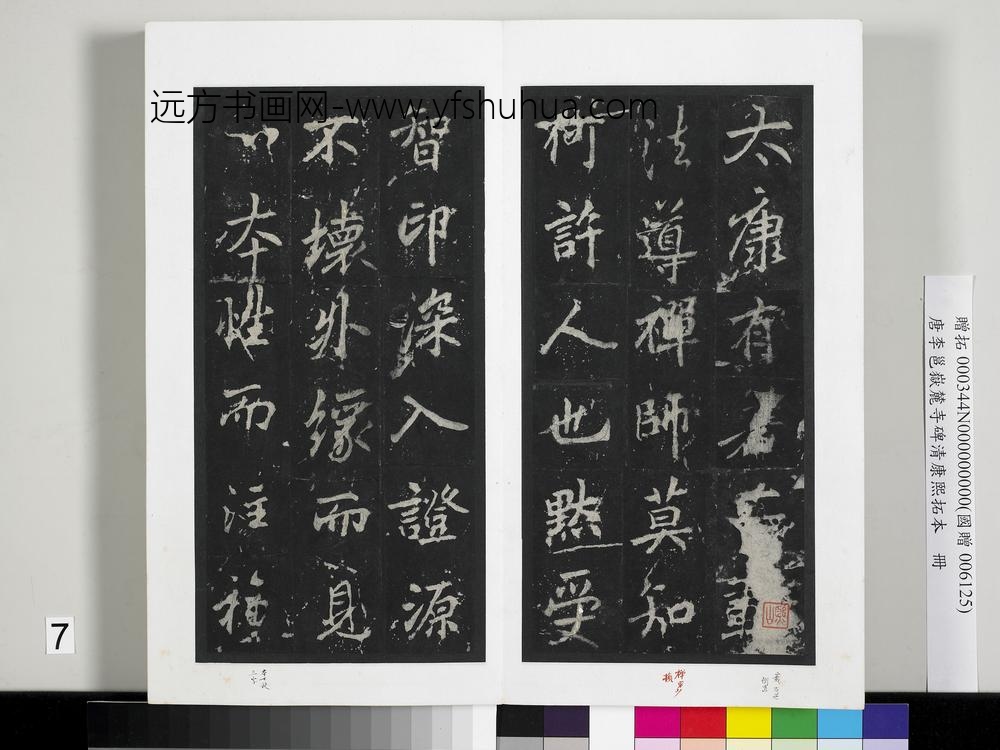 远方书画网-www.yfshuhua.com
太康有者
法導禪師莫知
何許人也黙受
智印深入證源
不壞外緣而見
心本性而注種
贈拓 000344N000000000(國贈 006125)
唐李邕嶽麓寺碑清康熙拓本 冊
7